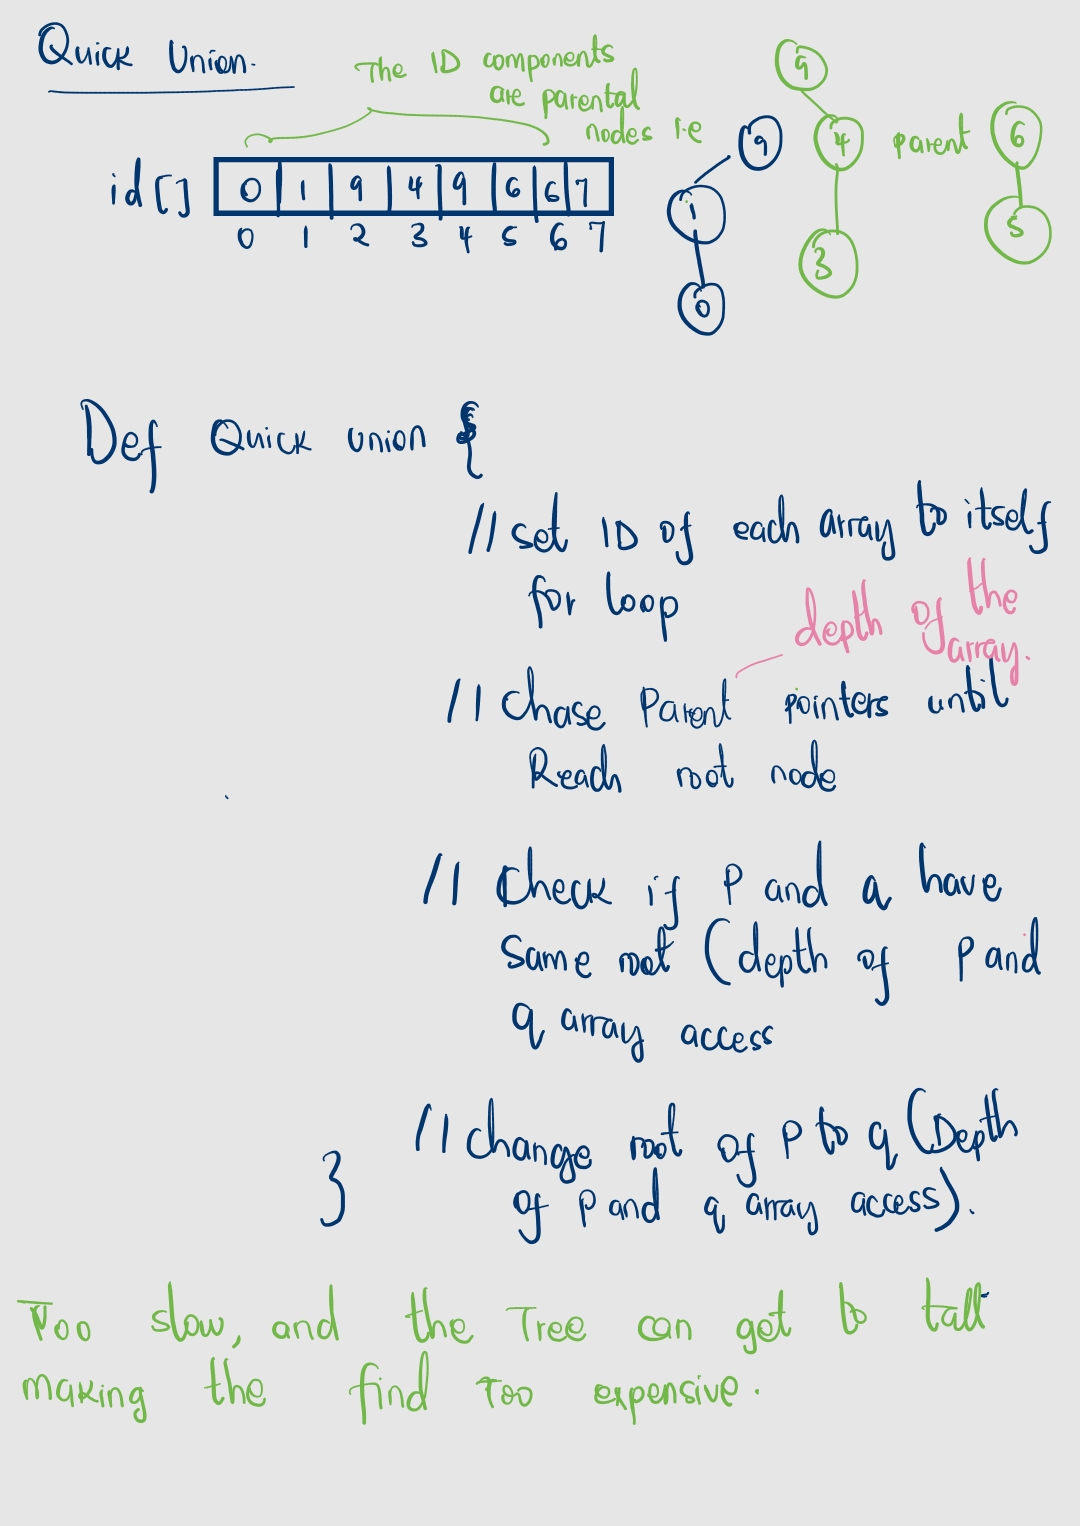 Quick Union.
The ID components
are parental
nodes i.e
id[] 0 1 9 4 9 6 6 7
0 1 2 3 4 5 6 7
9
1
0
9
4 parent
3
6
5
Def Quick union {
// set ID of each array to itself
for loop
depth of the
array.
// Chase Parent pointers until
Reach root node
// Check if P and q have
Same root (depth of P and
q array access
// Change root of P to q (Depth
of P and q array access).
}
Too slow, and the Tree can get to tall
making the find Too expensive.